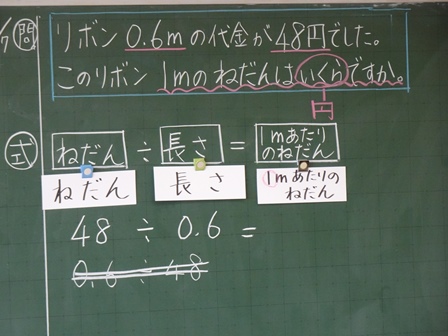 問 リボン0.6mの代金が48円でした。
このリボン1mのねだんはいくらですか。
円
式 ねだん ÷ 長さ = 1mあたりのねだん
ねだん 長さ 1mあたりのねだん
48 ÷ 0.6 =
0.6 ÷ 48